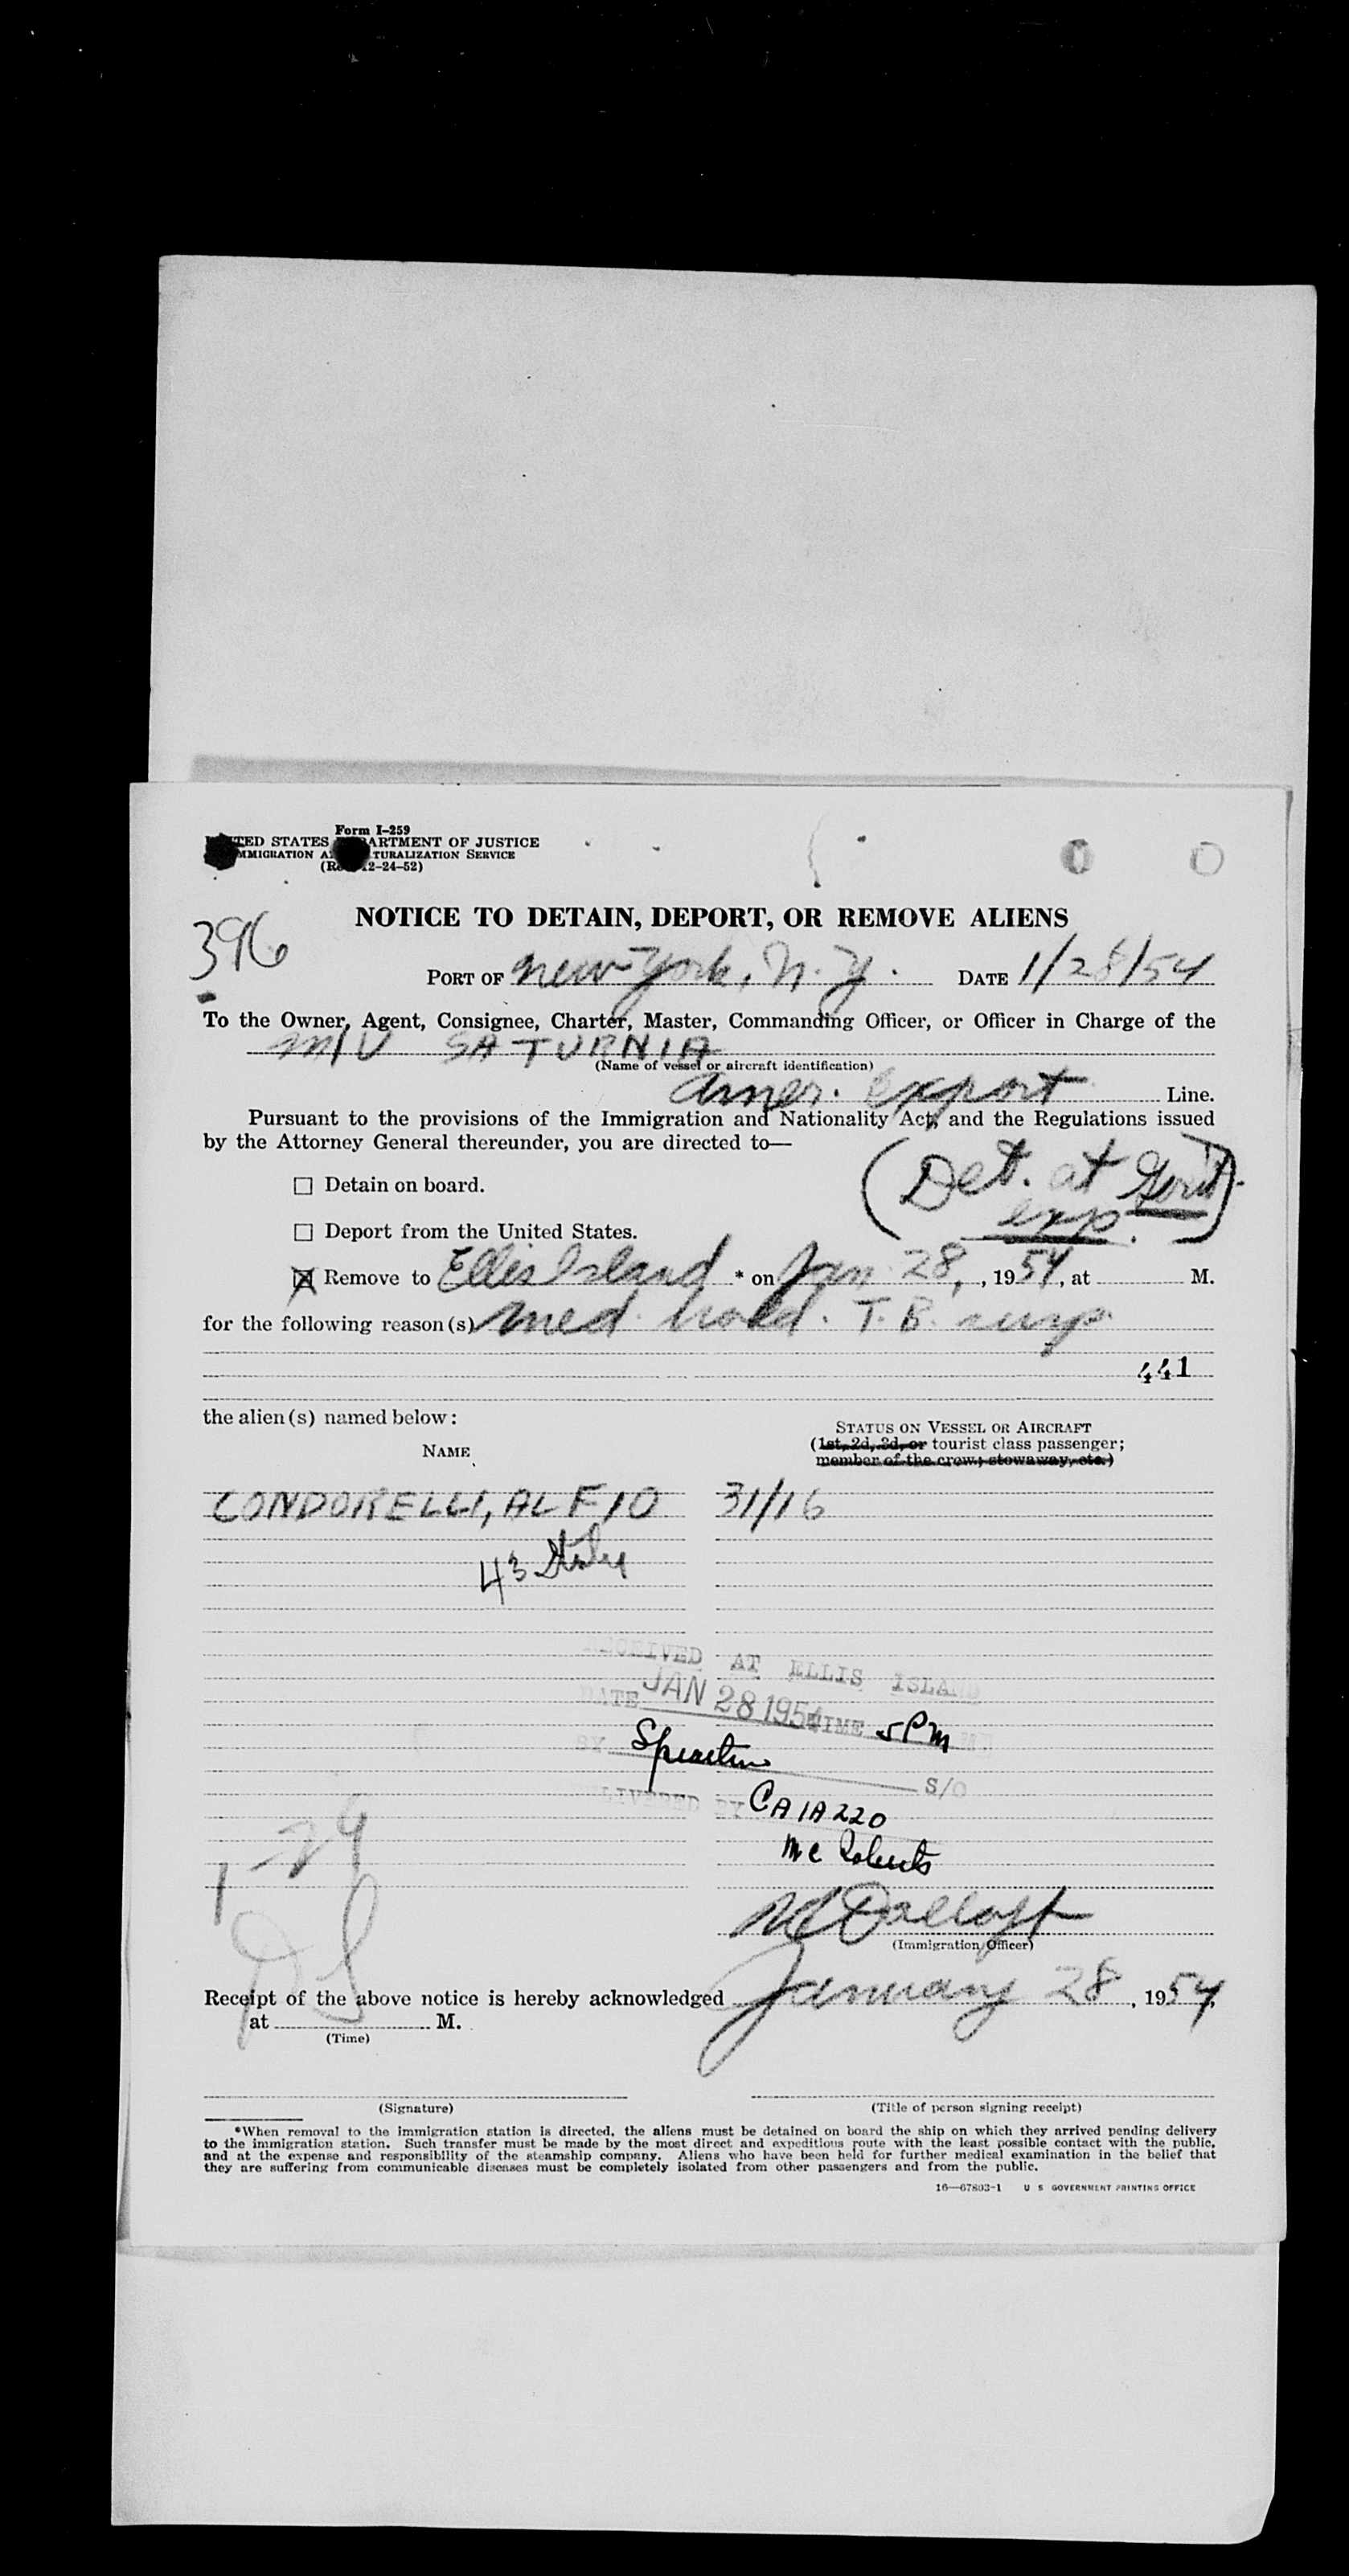 Form I-259
TED STATES ARTMENT OF JUSTICE
MMIGRATION A TURALIZATION SERVICE
2-24-52)
396
NOTICE TO DETAIN, DEPORT, OR REMOVE ALIENS
PORT OF New York, N.Y. DATE 1/28/54
To the Owner, Agent, Consignee, Charter, Master, Commanding Officer, or Officer in Charge of the
M/V SATURNIA
(Name of vessel or aircraft identification)
Amer. Export Line.
Pursuant to the provisions of the Immigration and Nationality Act, and the Regulations issued
by the Attorney General thereunder, you are directed to—
(Det. at Govt.
exp.)
☐ Detain on board.
☐ Deport from the United States.
☒ Remove to Ellis Island * on Jan 28, , 1954, at M.
for the following reason(s) Med. hold. T.B. susp.
441
the alien(s) named below:
NAME
STATUS ON VESSEL OR AIRCRAFT
(1st, 2d, 3d, or tourist class passenger;
member of the crew; stowaway, etc.)
CONDORELLI, ALFIO 31/16
43 Italy
RECEIVED AT ELLIS ISLAND
DATE JAN 28 1954 TIME 5PM
BY S/O
DELIVERED BY CA1A220
Mc Roberts
1-29
(Immigration Officer)
Receipt of the above notice is hereby acknowledged January 28, 1954,
at M.
(Time)
(Signature) (Title of person signing receipt)
*When removal to the immigration station is directed, the aliens must be detained on board the ship on which they arrived pending delivery
to the immigration station. Such transfer must be made by the most direct and expeditious route with the least possible contact with the public,
and at the expense and responsibility of the steamship company. Aliens who have been held for further medical examination in the belief that
they are suffering from communicable diseases must be completely isolated from other passengers and from the public.
16—67803-1 U S GOVERNMENT PRINTING OFFICE